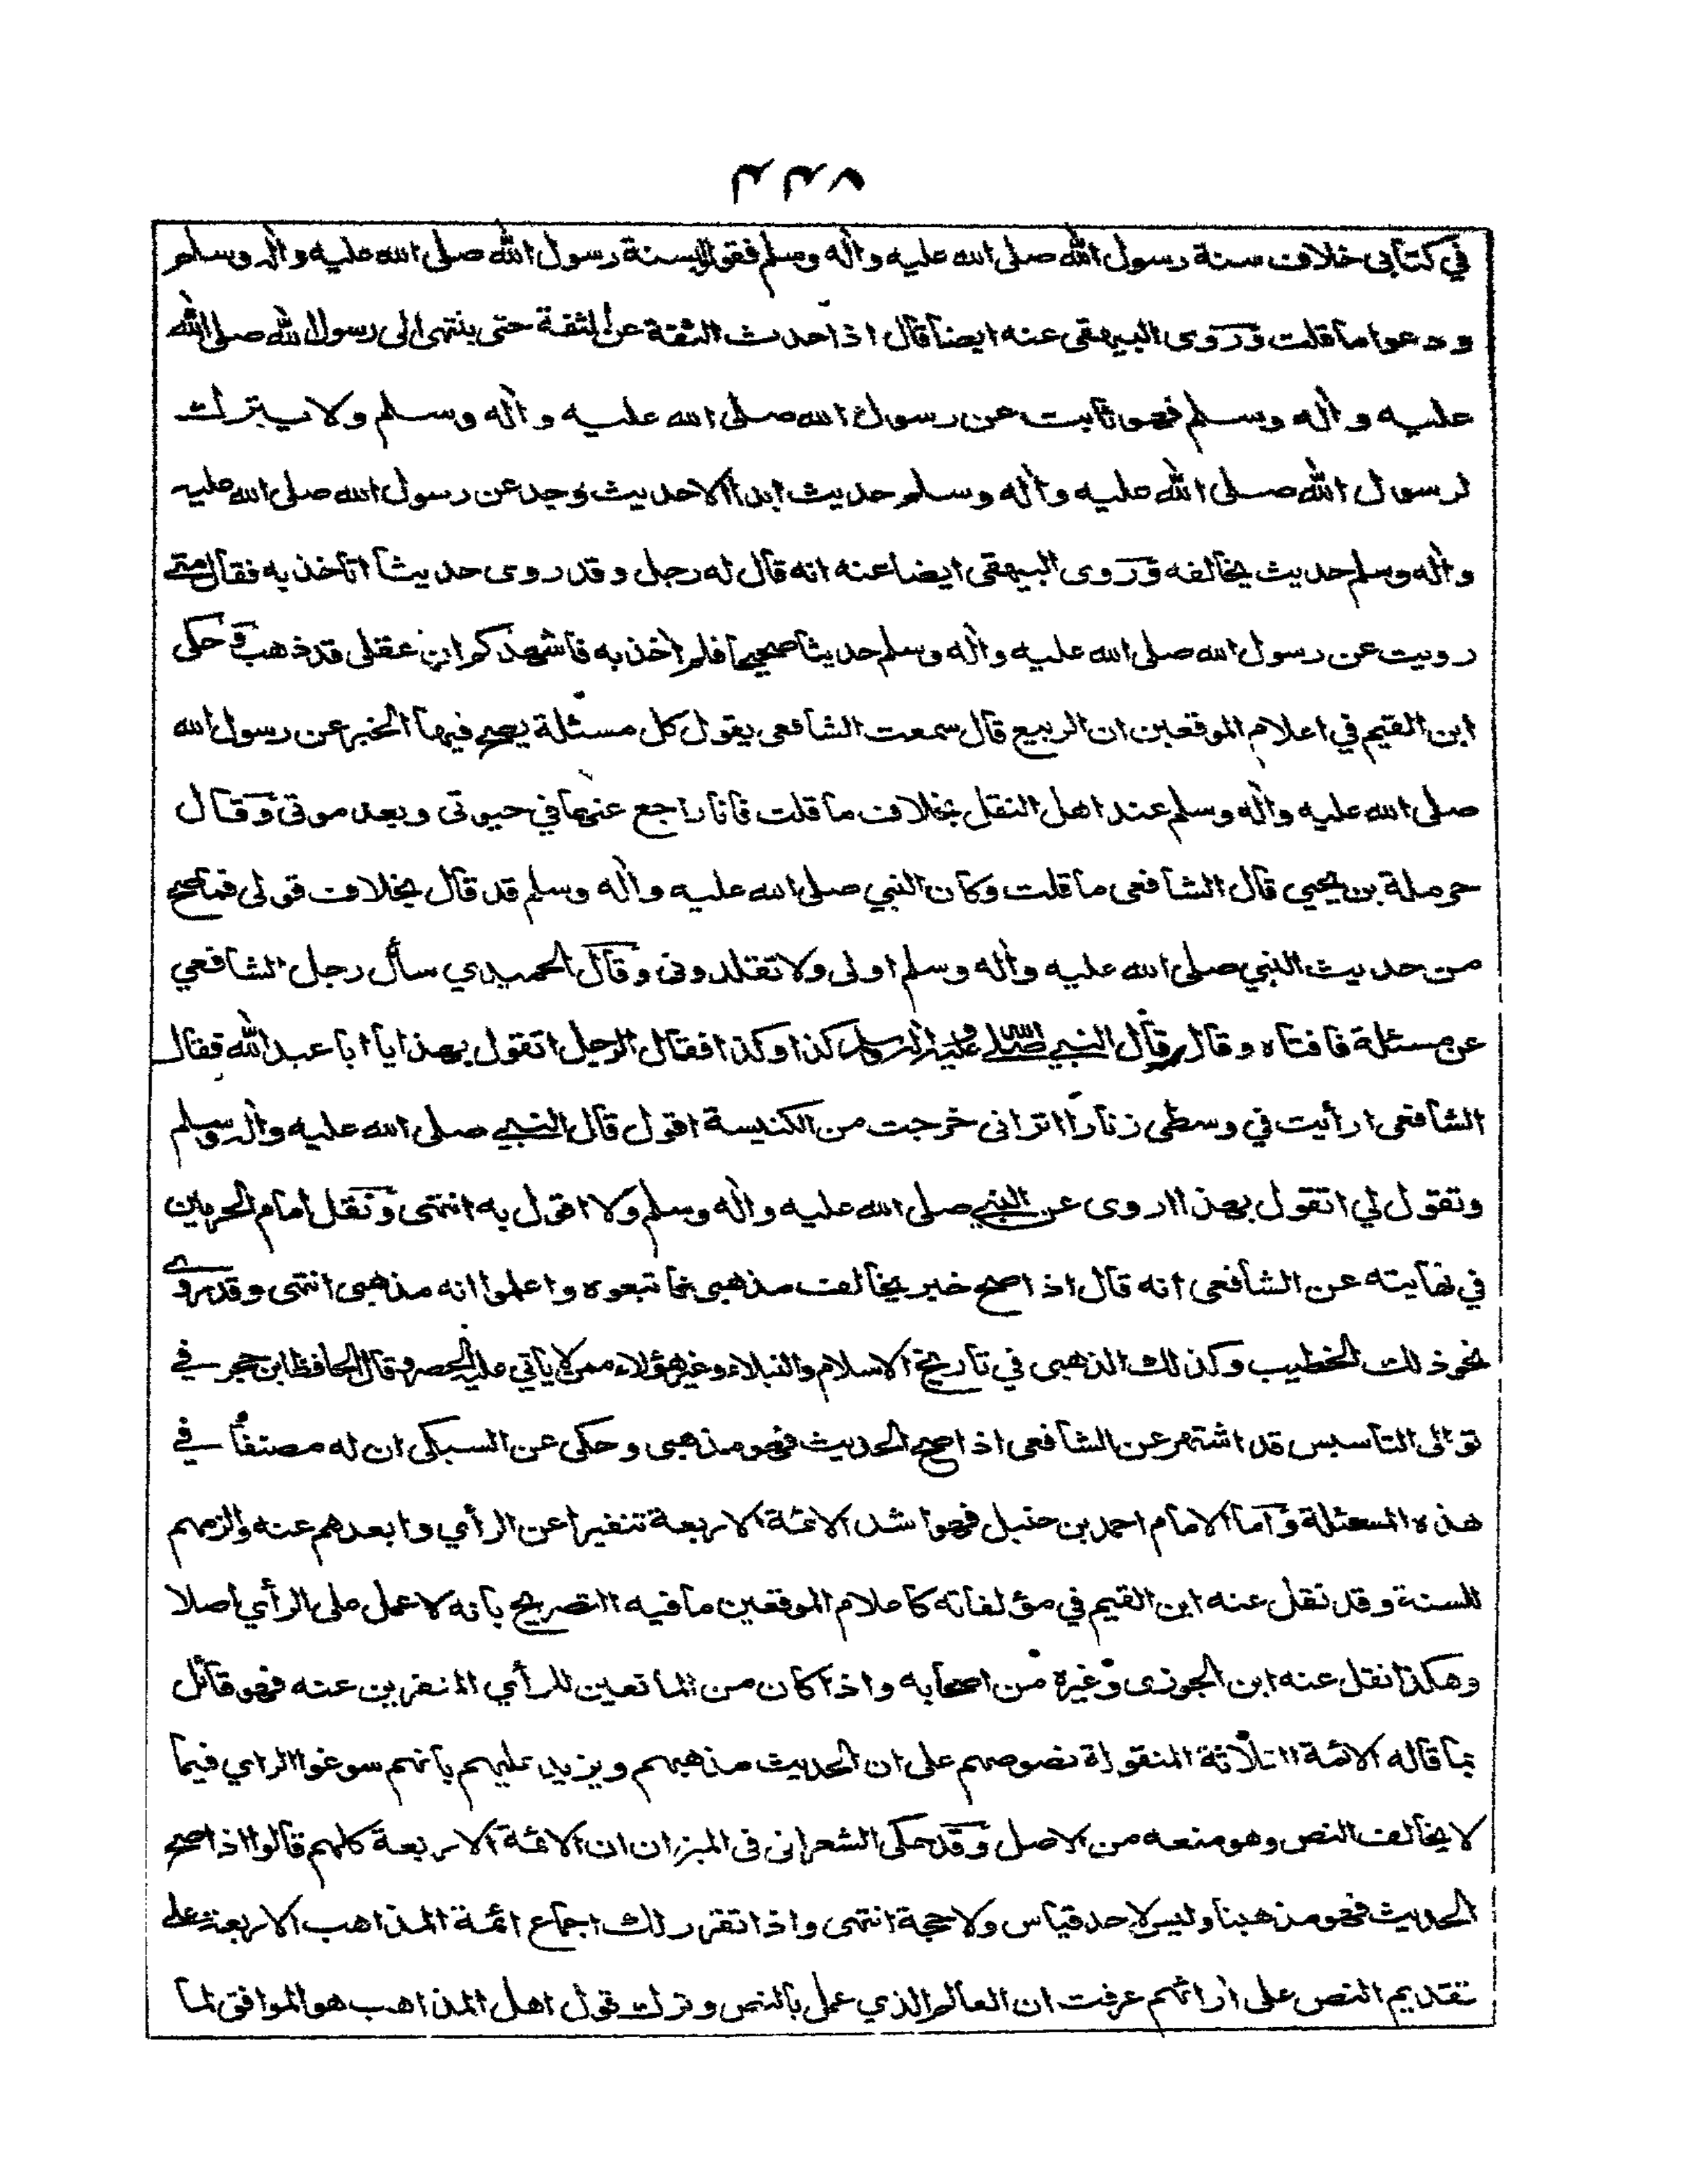 ٢٢٧
في كتابى خلاف سنة رسول الله صلى الله عليه وأله وسلم فقولوا بسنة رسول الله صلى الله عليه واله وسلم
ودعوا ما قلت وروى البيهقى عنه ايضا قال اذا حدث الثقة عن الثقة حتى ينتهى الى رسول الله صلى الله
عليه وأله وسلم فهو ثابت عن رسول الله صلى الله عليه وأله وسلم ولا يترك
لرسول الله صلى الله عليه وأله وسلم حديث ابدا الا حديث وجد عن رسول الله صلى الله عليه
وأله وسلم حديث يخالفه وروى البيهقى ايضا عنه انه قال له رجل وقد روى حديثا اتأخذ به فقال متى
رويت عن رسول الله صلى الله عليه وأله وسلم حديثا صحيحا فلم أخذ به فاشهدكم ان عقلى قد ذهب وحكى
ابن القيم في اعلام الموقعين ان الربيع قال سمعت الشافعى يقول كل مسئلة يصح فيها الخبر عن رسول الله
صلى الله عليه وأله وسلم عند اهل النقل بخلاف ما قلت فانا راجع عنها في حيوتى وبعد موتى وقال
حرملة بن يحيى قال الشافعى ما قلت وكان النبي صلى الله عليه وأله وسلم قد قال بخلاف قولى فما صح
من حديث النبي صلى الله عليه وأله وسلم اولى ولا تقلدونى وقال الحميدي سأل رجل الشافعي
عن مسئلة فافتاه وقال قال النبي صلى الله عليه وآله وسلم كذا وكذا فقال الرجل اتقول بهذا يا ابا عبد الله فقال
الشافعى ارأيت في وسطى زنارا اترانى خرجت من الكنيسة اقول قال النبي صلى الله عليه واله وسلم
وتقول لي اتقول بهذا اروى عن النبي صلى الله عليه وأله وسلم ولا اقول به انتهى ونقل امام الحرمين
في نهايته عن الشافعى انه قال اذا صح خبر يخالف مذهبى فاتبعوه واعلموا انه مذهبى انتهى وقد روى
نحو ذلك الخطيب وكذلك الذهبى في تاريخ الاسلام والنبلاء وغير هؤلاء ممن لا يأتي عليه الحصر وقال الحافظ ابن حجر في
توالى التأسيس قد اشتهر عن الشافعى اذا صح الحديث فهو مذهبى وحكى عن السبكى ان له مصنفا في
هذه المسئلة وأما الامام احمد بن حنبل فهو اشد الائمة الاربعة تنفيرا عن الرأي وابعدهم عنه والزمهم
للسنة وقد نقل عنه ابن القيم في مؤلفاته كاعلام الموقعين ما فيه التصريح بانه لا عمل على الرأي اصلا
وهكذا نقل عنه ابن الجوزى وغيره من اصحابه واذا كان من المانعين للرأي المنفرين عنه فهو قائل
بما قاله الائمة الثلاثة المنقولة نصوصهم على ان الحديث مذهبهم ويزيد عليهم بانهم سوغوا الراي فيما
لا يخالف النص وهو منعه من الاصل وقد حكى الشعرانى في الميزان ان الائمة الاربعة كلهم قالوا اذا صح
الحديث فهو مذهبنا وليس لاحد قياس ولا حجة انتهى واذا تقرر لك اجماع ائمة المذاهب الاربعة على
تقديم النص على أرائهم عرفت ان العالم الذي عمل بالنص وترك قول اهل المذاهب هو الموافق لما